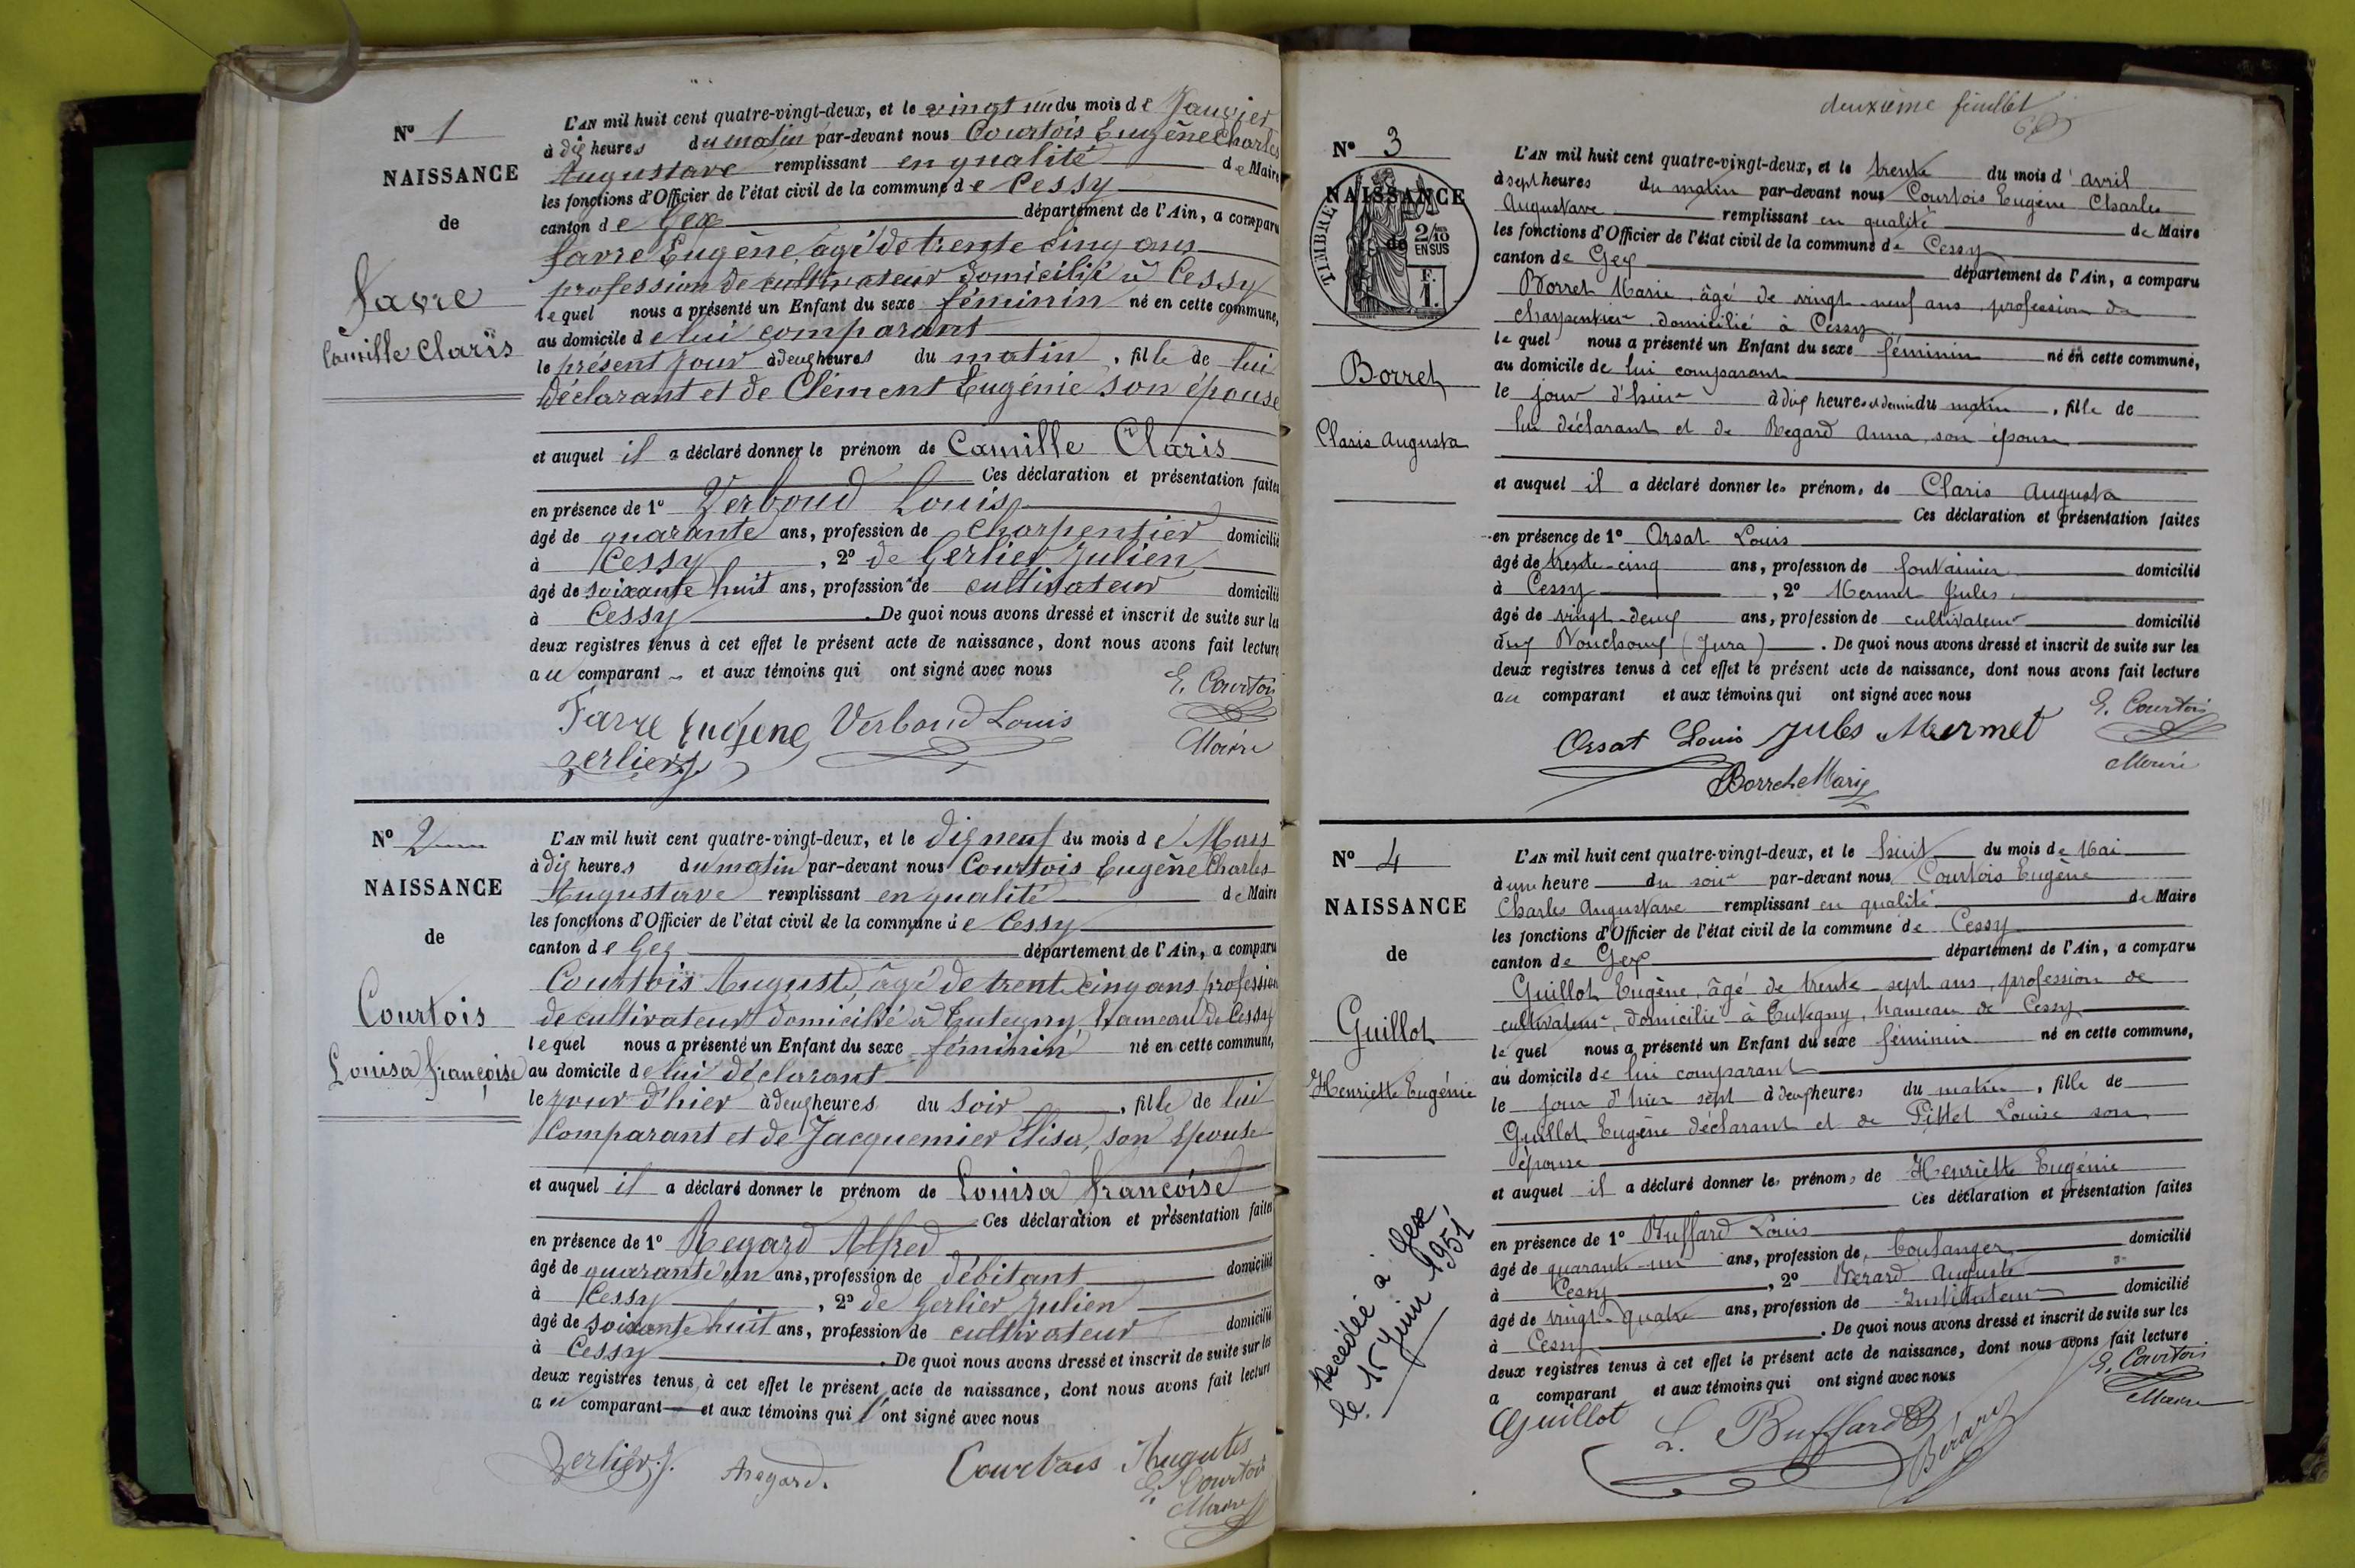 N° 1
NAISSANCE
de
Favre
Camille Claris
L'AN mil huit cent quatre-vingt-deux, et le vingt un du mois de Janvier
à dix heures du matin par-devant nous Courtois Eugène Charles
Augustave remplissant en qualité de Maire
les fonctions d'Officier de l'état civil de la commune de Cessy
canton de Gex département de l'Ain, a comparu
Favre Eugène âgé de trente cinq ans
profession de cultivateur domicilié à Cessy
lequel nous a présenté un Enfant du sexe féminin né en cette commune,
au domicile de lui comparant
le présent jour à deux heures du matin, fille de lui
déclarant et de Clément Eugénie son épouse
et auquel il a déclaré donner le prénom de Camille Claris
Ces déclaration et présentation faites
en présence de 1° Verboud Louis
âgé de quarante ans, profession de charpentier domicilié
à Cessy, 2° de Gerlier Julien
âgé de soixante huit ans, profession de cultivateur domicilié
à Cessy. De quoi nous avons dressé et inscrit de suite sur les
deux registres tenus à cet effet le présent acte de naissance, dont nous avons fait lecture
au comparant et aux témoins qui ont signé avec nous
E. Courtois
Favre Eugene Verboud Louis
Maire
Gerlier J
N° 2
NAISSANCE
de
Courtois
Louisa françoise
L'AN mil huit cent quatre-vingt-deux, et le dix neuf du mois de Mars
à dix heures du matin par-devant nous Courtois Eugène Charles
Augustave remplissant en qualité de Maire
les fonctions d'Officier de l'état civil de la commune de Cessy
canton de Gex département de l'Ain, a comparu
Courtois Auguste, âgé de trente cinq ans profession
de cultivateur domicilié à Tutegny, hameau de Cessy
lequel nous a présenté un Enfant du sexe féminin né en cette commune,
au domicile de lui déclarant
le jour d'hier à deux heures du soir, fille de lui
comparant et de Jacquemier Elisa, son épouse
et auquel il a déclaré donner le prénom de Louisa françoise
Ces déclaration et présentation faites
en présence de 1° Regard Alfred
âgé de quarante un ans, profession de débitant domicilié
à Cessy, 2° de Gerlier Julien
âgé de soixante huit ans, profession de cultivateur domicilié
à Cessy. De quoi nous avons dressé et inscrit de suite sur les
deux registres tenus à cet effet le présent acte de naissance, dont nous avons fait lecture
au comparant et aux témoins qui ont signé avec nous
Gerlier J. Aregard. Courtois Augutes
E. Courtois
Maire
deuxième feuillet
N° 3
NAISSANCE
de
TIMBRE
2/10
EN SUS
F.
1.
Borret
Claris Augusta
L'AN mil huit cent quatre-vingt-deux, et le trente du mois d'avril
à sept heures du matin par-devant nous Courtois Eugène Charles
Augustave remplissant en qualité de Maire
les fonctions d'Officier de l'état civil de la commune de Cessy
canton de Gex département de l'Ain, a comparu
Borret Marie, âgé de vingt-neuf ans, profession de
charpentier, domicilié à Cessy
lequel nous a présenté un Enfant du sexe féminin né en cette commune,
au domicile de lui comparant
le jour d'hier à dix heures et demie du matin, fille de
lui déclarant et de Regard Anna, son épouse
et auquel il a déclaré donner les prénoms de Claris Augusta
Ces déclaration et présentation faites
en présence de 1° Orsat Louis
âgé de trente-cinq ans, profession de fontainier domicilié
à Cessy, 2° Mermet Jules
âgé de vingt-deux ans, profession de cultivateur domicilié
aux Bouchoux (Jura). De quoi nous avons dressé et inscrit de suite sur les
deux registres tenus à cet effet le présent acte de naissance, dont nous avons fait lecture
au comparant et aux témoins qui ont signé avec nous
E. Courtois
Orsat Louis Jules Mermet
Maire
Borret Marie
N° 4
NAISSANCE
de
Guillot
Henriette Eugénie
Décédée à Gex
le 15 Juin 1951
L'AN mil huit cent quatre-vingt-deux, et le huit du mois de Mai
à une heure du soir par-devant nous Courtois Eugène
Charles Augustave remplissant en qualité de Maire
les fonctions d'Officier de l'état civil de la commune de Cessy
canton de Gex département de l'Ain, a comparu
Guillot Eugène, âgé de trente-sept ans, profession de
cultivateur, domicilié à Tutegny, hameau de Cessy
lequel nous a présenté un Enfant du sexe féminin né en cette commune,
au domicile de lui comparant
le jour d'hier sept à deux heures du matin, fille de
Guillot Eugène déclarant et de Pittet Louise son
épouse
et auquel il a déclaré donner les prénoms de Henriette Eugénie
Ces déclaration et présentation faites
en présence de 1° Buffard Louis
âgé de quarante-un ans, profession de boulanger domicilié
à Cessy, 2° Bérard Auguste
âgé de vingt-quatre ans, profession de Instituteur domicilié
à Cessy. De quoi nous avons dressé et inscrit de suite sur les
deux registres tenus à cet effet le présent acte de naissance, dont nous avons fait lecture
a comparant et aux témoins qui ont signé avec nous
E. Courtois
Maire
Guillot L. Buffard Bérard